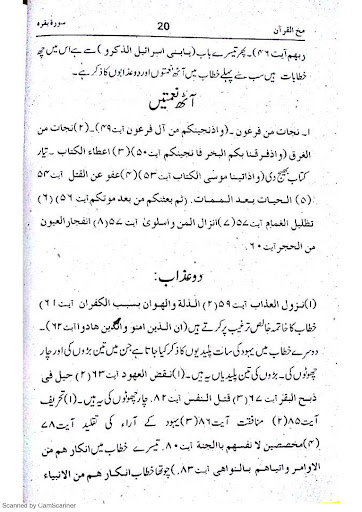 سورة بقره 20 مخ القرآن
ربهم آیت ۴۶)۔ پھر تیسرے باب (یابنی اسرائیل الذکرو) سے ہے اس میں چھ
خطابات ہیں سب سے پہلے خطاب میں آٹھ نعمتوں اور دو عذابوں کا ذکر ہے۔
آٹھ نعمتیں
۱۔ نجات من فرعون ۔(واذنجینکم من آل فرعون آیت ۴۹)۔(۲) نجات من
الغرق (واذفرقنا بکم البخر فا نجینکم آیت ۵۰)(۳) اعطاء الکتاب ۔ تیار
کتاب بھیج دی (واذاتینا موسٰی الکتاب آیت ۵۳)(۴) عفو عن القتل آیت ۵۴
(۵) الحیات بعد الممات۔ (لم بعثنکم من بعد موتکم آیت ۵۶)(۶)
تظلیل الغمام آیت ۵۷(۷) انزال المن واسلویٰ آیت ۵۷(۸) انفجار العیون
من الحجر آیت ۶۰۔
دو عذاب:
(۱) نزول العذاب آیت ۵۹(۲) الذلة والهوان بسبب الکفران آیت ۶۱)
خطاب کا خاتمہ خالص ترغیب پر کرتے ہیں (ان الذین امنو والذین هادوا آیت ۶۲)۔
دوسرے خطاب میں یہود کی سات پلیدیوں کا ذکر کیا جاتا ہے جن میں تین بڑوں کی اور چار
چھوٹوں کی۔ بڑوں کی تین پلیدیاں یہ ہیں۔(۱) نقض العهود آیت ۶۳(۲) حیل فی
ذبح البقر آیت ۶۷(۳) قتل النفس آیت ۸۲۔ چار چھوٹوں کی یہ ہیں۔(۱) تحریف
آیت ۸۵(۲) منافقت آیت ۸۶(۳) یہود کے آراء کی تقلید آیت ۷۸
(۴) مخصصین لا نفسهم باالجنة آیت ۸۰۔ تیسرے خطاب میں انکار هم من
الاوامر واتیاهم بالنواهی آیت ۸۳۔) چوتھا خطاب انکار هم من الانبیاء
Scanned by CamScanner